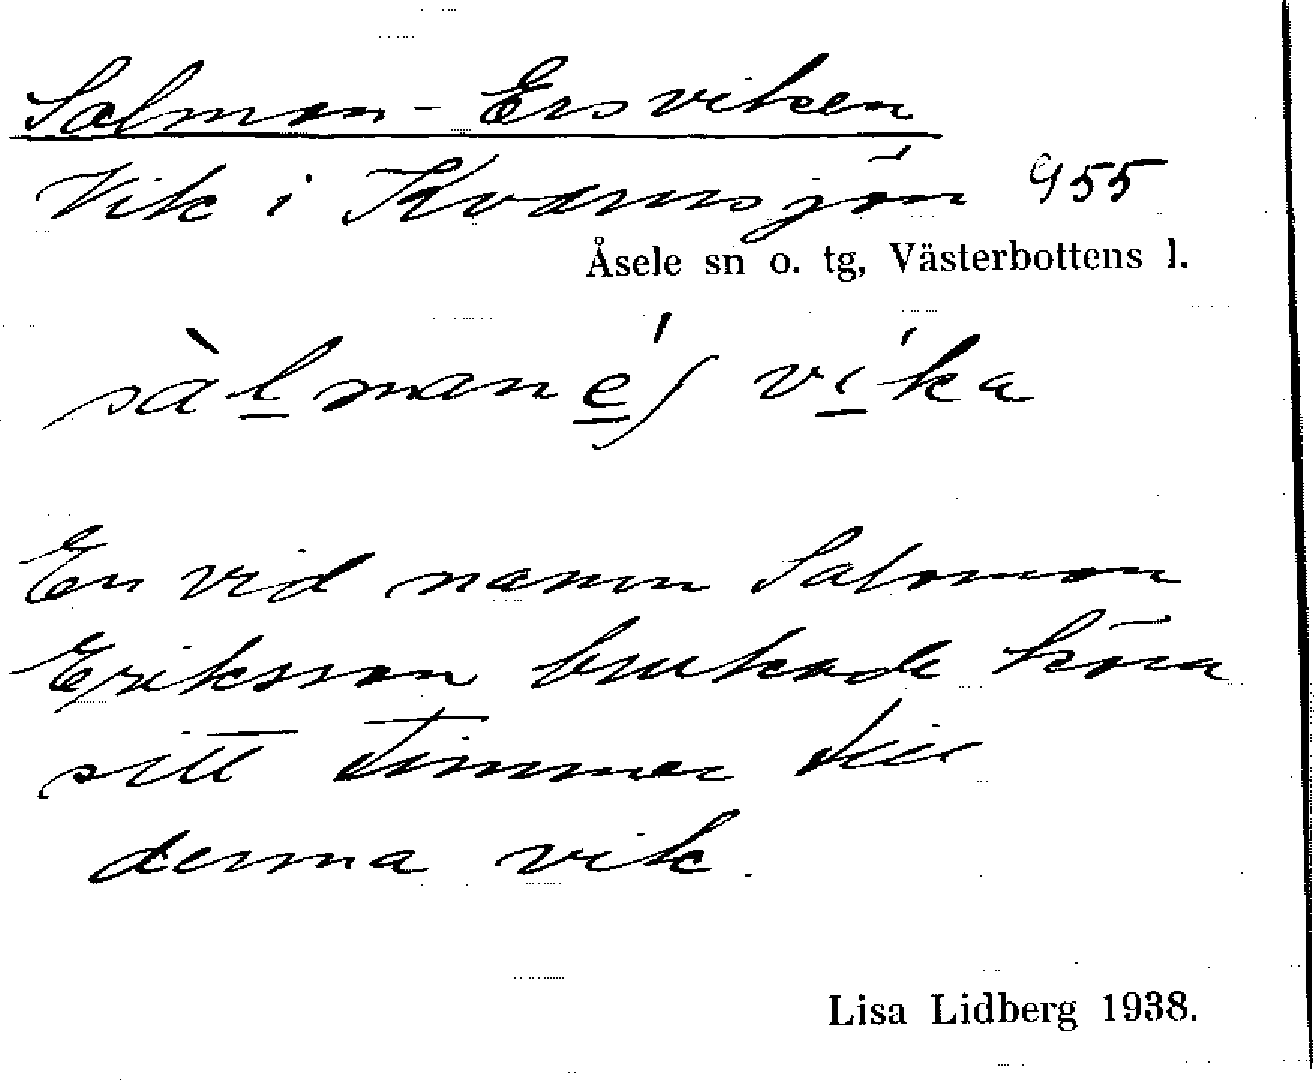 Salmon-Ersviken
Vik i Kvarnsjön 955
Åsele sn o. tg, Västerbottens l.
sàlmanéʃ víka
En vid namn Salomon
Eriksson brukade köra
sitt timmer till
denna vik.
Lisa Lidberg 1938.